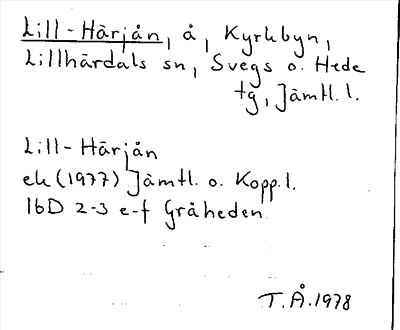 Lill-Härjån, å, Kyrkbyn,
Lillhärdals sn, Svegs o. Hede
tg, Jämtl. l.
Lill-Härjån
ek (1977) Jämtl. o. Kopp. l.
16D 2-3 e-f Gråheden
T.Å. 1978